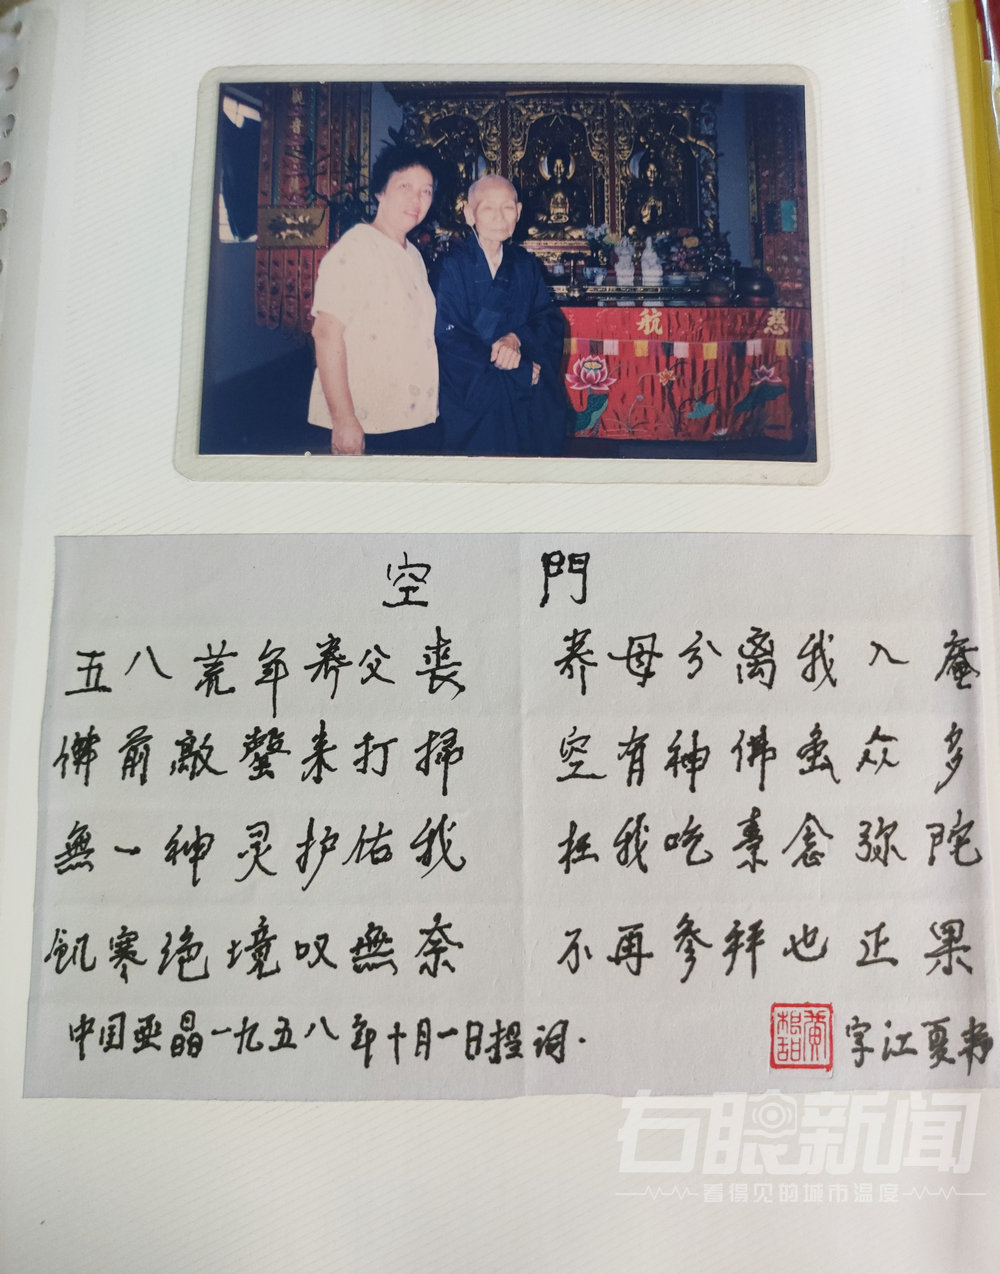 觀音
慈航
空門
五八荒年养父丧 养母分离我入庵
佛前敲磬来打掃 空有神佛虽众多
無一神灵护佑我 枉我吃素念弥陀
飢寒绝境叹無奈 不再參拜也正果
中国亚晶一九五八年十月一日提词.
字江夏书
右眼新闻
看得见的城市温度